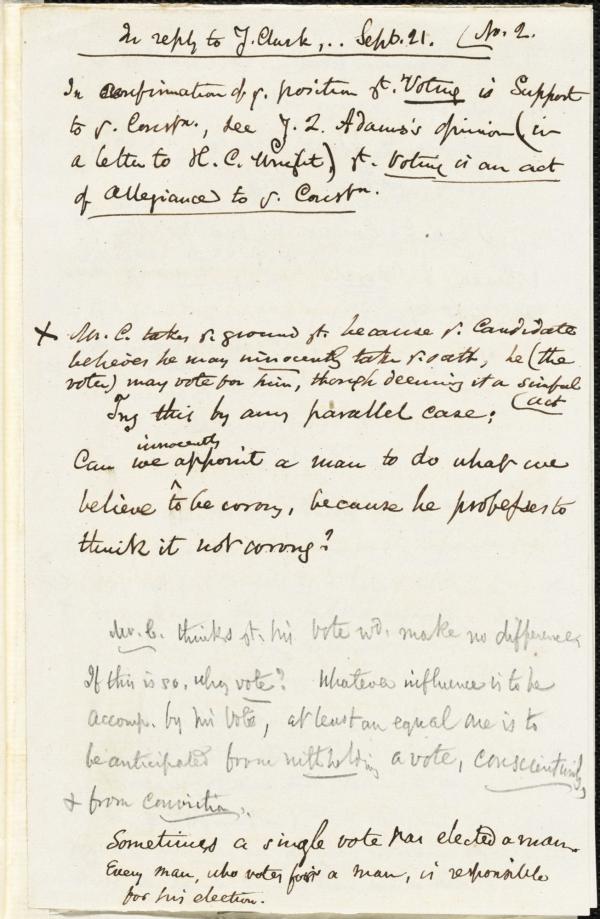 In reply to J. Clark, .. Sept. 21. (No. 2.
In confirmation of y. position yt. Voting is Support
to y. Constn., see J. Q. Adams's opinion (in
a letter to H. C. Wright,) yt. Voting is an act
of Allegiance to y. Constn.
x Mr. C. takes y. ground yt. because y. Candidate
believes he may innocently take y. oath, he (the
voter) may vote for him, though deeming it a sinful
(act
Try this by any parallel case:
innocently
Can we appoint a man to do what we
believe ^ to be wrong, because he professes to
think it not wrong?
Mr. C. thinks yt. his vote wd. make no difference.
If this is so, why vote? Whatever influence is to be
accomp. by his Vote, at least an equal one is to
be anticipated from withholding a vote, conscientiously,
& from conviction.
Sometimes a single vote has elected a man.
Every man, who votes for a man, is responsible
for his election.